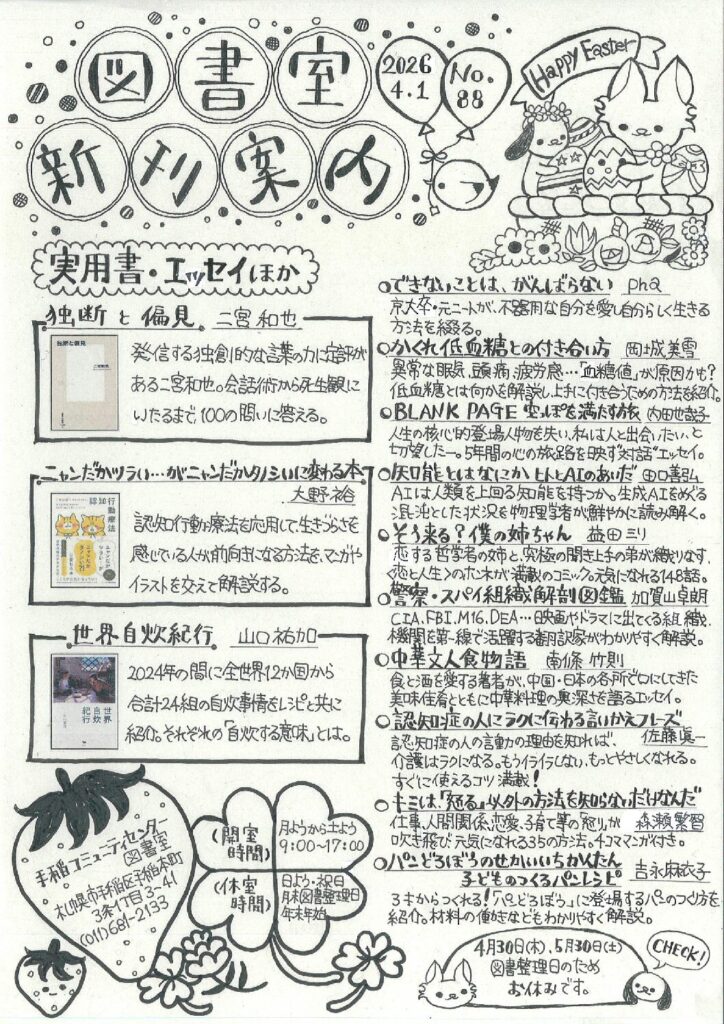 図書室
新刊案内
2026
4.1
No.
88
Happy Easter
実用書・エッセイほか
独断と偏見 二宮和也
独断と偏見
二宮和也
発信する独創的な言葉の力に定評が
ある二宮和也。会話術から死生観に
いたるまで、100の問いに答える。
ニャンだかツラい…がニャンだかタノシいに変わる本
大野裕
認知行動療法
認知行動療法を応用して、生きづらさを
感じている人が前向きになる方法を、マンガや
イラストを交えて解説する。
世界自炊紀行 山口祐加
世界自炊紀行
2024年の間に全世界12か国から
合計24組の自炊事情をレシピと共に
紹介。それぞれの「自炊する意味」とは。
できないことは、がんばらない pha
京大卒・元ニートが、不器用な自分を愛し自分らしく生きる
方法を綴る。
かくれ低血糖との付き合い方 岡城美雪
異常な眠気、頭痛、疲労感…「血糖値」が原因かも?
低血糖とは何かを解説し、上手に付き合うための方法を紹介。
BLANK PAGE 空っぽを満たす旅 内田也哉子
人生の核心的登場人物を失い、私は人と出会いたい、と
切望した―。5年間の心の旅路を映す"対話"エッセイ。
知能とはなにか ヒトとAIのあいだ 田口善弘
AIは人類を上回る知能を持つか。生成AIをめぐる
混沌とした状況を物理学者が鮮やかに読み解く。
そう来る?僕の姉ちゃん 益田ミリ
恋する哲学者の姉と、究極の聞き上手の弟が織りなす、
〈恋と人生〉のホンネが満載のコミック。元気になれる148話。
警察・スパイ組織解剖図鑑 加賀山卓朗
CIA、FBI、M16、DEA…映画やドラマに出てくる組織、
機関を第一線で活躍する翻訳家がわかりやすく解説。
中華文人食物語 南條竹則
食と酒を愛する著者が、中国・日本の各所で口にしてきた
美味佳肴とともに中華料理の奥深さを語るエッセイ。
認知症の人にラクに伝わる言いかえフレーズ
佐藤眞一
認知症の人の言動の理由を知れば、
介護はラクになる。もうイライラしない、もっとやさしくなれる。
すぐに使えるコツ満載!
キミは、「怒る」以外の方法を知らないだけなんだ
森瀬繁智
仕事、人間関係、恋愛、子育て等の「怒り」が
吹き飛び元気になれる35の方法。4コママンガ付き。
パンどろぼうのせかいいちかんたん
子どものつくるパンレシピ 吉永麻衣子
3才からつくれる!「パンどろぼう」に登場するパンのつくり方を
紹介。材料の働きなどもわかりやすく解説。
手稲コミュニティセンター
図書室
札幌市手稲区手稲本町
3条1丁目3-41
(011)681-2133
(開室時間)
月ようから土よう
9:00~17:00
(休室時間)
日よう・祝日
月末図書整理日
年末年始
4月30日(木)、5月30日(土)
図書整理日のため
お休みです。
CHECK!